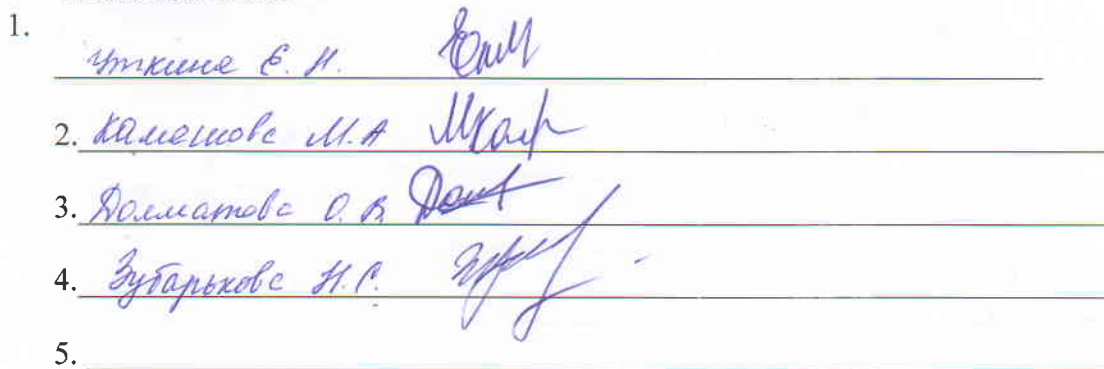 1.
Уткина Е. Н.
2. Камешова М.А
3. Долматова О. В.
4. Зубарькова Н.С.
5.